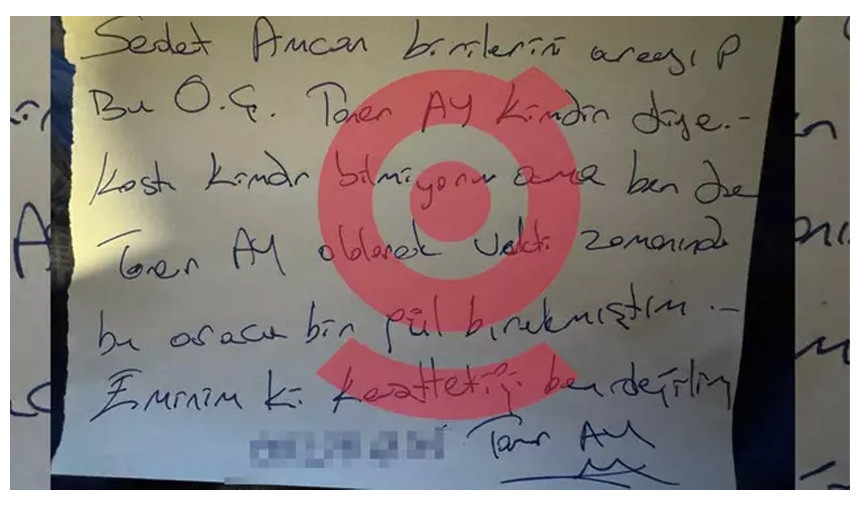 Sedat Amcan birilerini arayıp
Bu O.Ç. Taner AY kimdir diye.-
kimdir bilmiyorum ama ben de
Taner AY olarak vakti zamanında
bu araca bir pül bırakmıştım.-
Eminim ki ben değilim
Taner AY